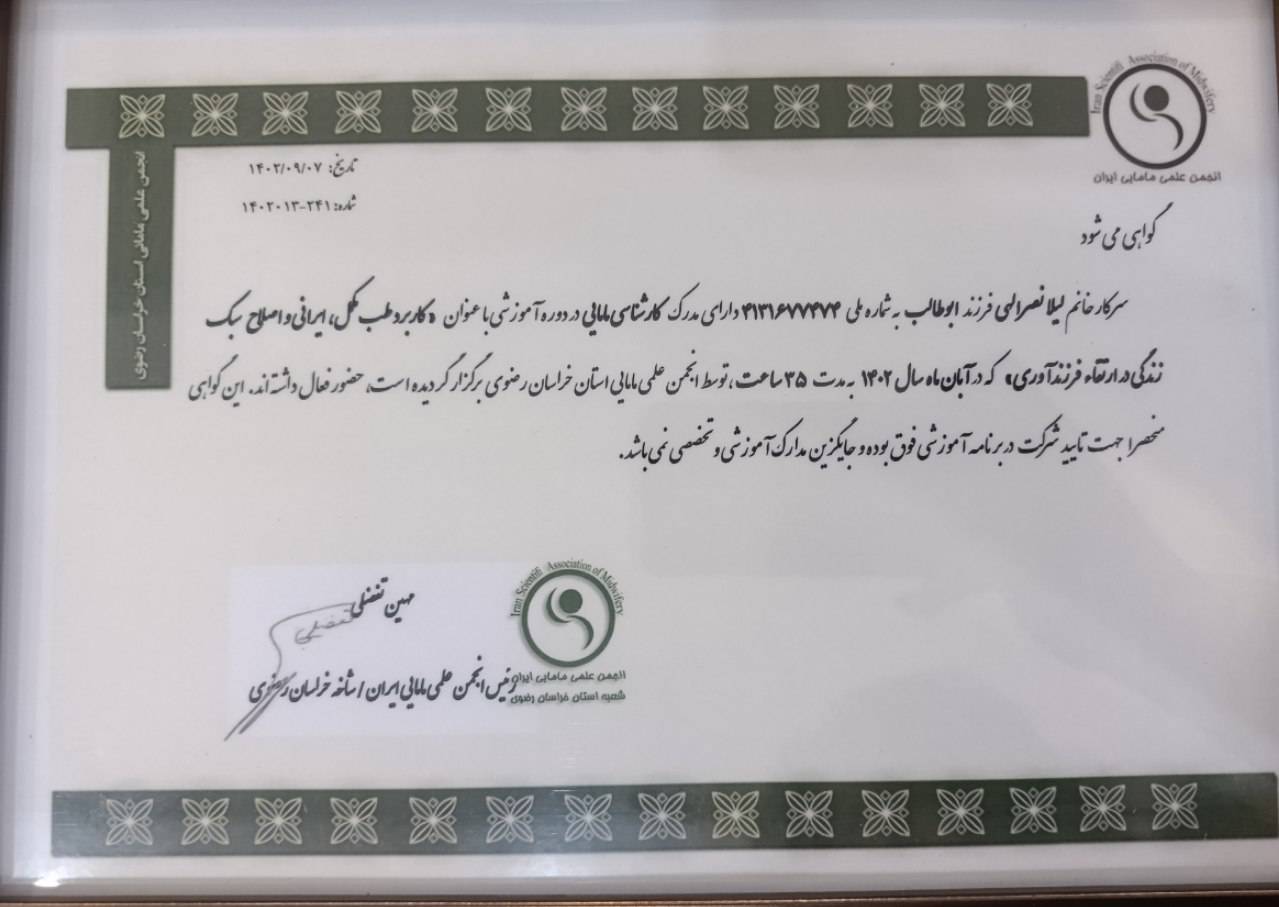 Iran Scientifi Association of Midwifery
انجمن علمی مامایی ایران
انجمن علمی مامائی استان خراسان رضوی
تاریخ: ۱۴۰۲/۰۹/۰۷
شماره: ۲۴۱-۱۴۰۲۰۱۳
گواهی می شود
سرکار خانم لیلا نصرالهی فرزند ابوطالب به شماره ملی ۴۱۳۱۶۷۷۴۷۴ دارای مدرک کارشناسی مامایی در دوره آموزشی با عنوان «کاربرد طب مکمل، ایرانی و اصلاح سبک
زندگی در ارتقاء فرزندآوری» که در آبان ماه سال ۱۴۰۲ به مدت ۳۵ ساعت، توسط انجمن علمی مامایی استان خراسان رضوی برگزار گردیده است، حضور فعال داشته اند. این گواهی
منحصرا جهت تایید شرکت در برنامه آموزشی فوق بوده و جایگزین مدارک آموزشی و تخصصی نمی باشد.
مهین تفضلی
تفضلی
رئیس انجمن علمی مامایی ایران / شاخه خراسان رضوی
Iran Scientifi Association of Midwifery
انجمن علمی مامایی ایران
شعبه استان خراسان رضوی